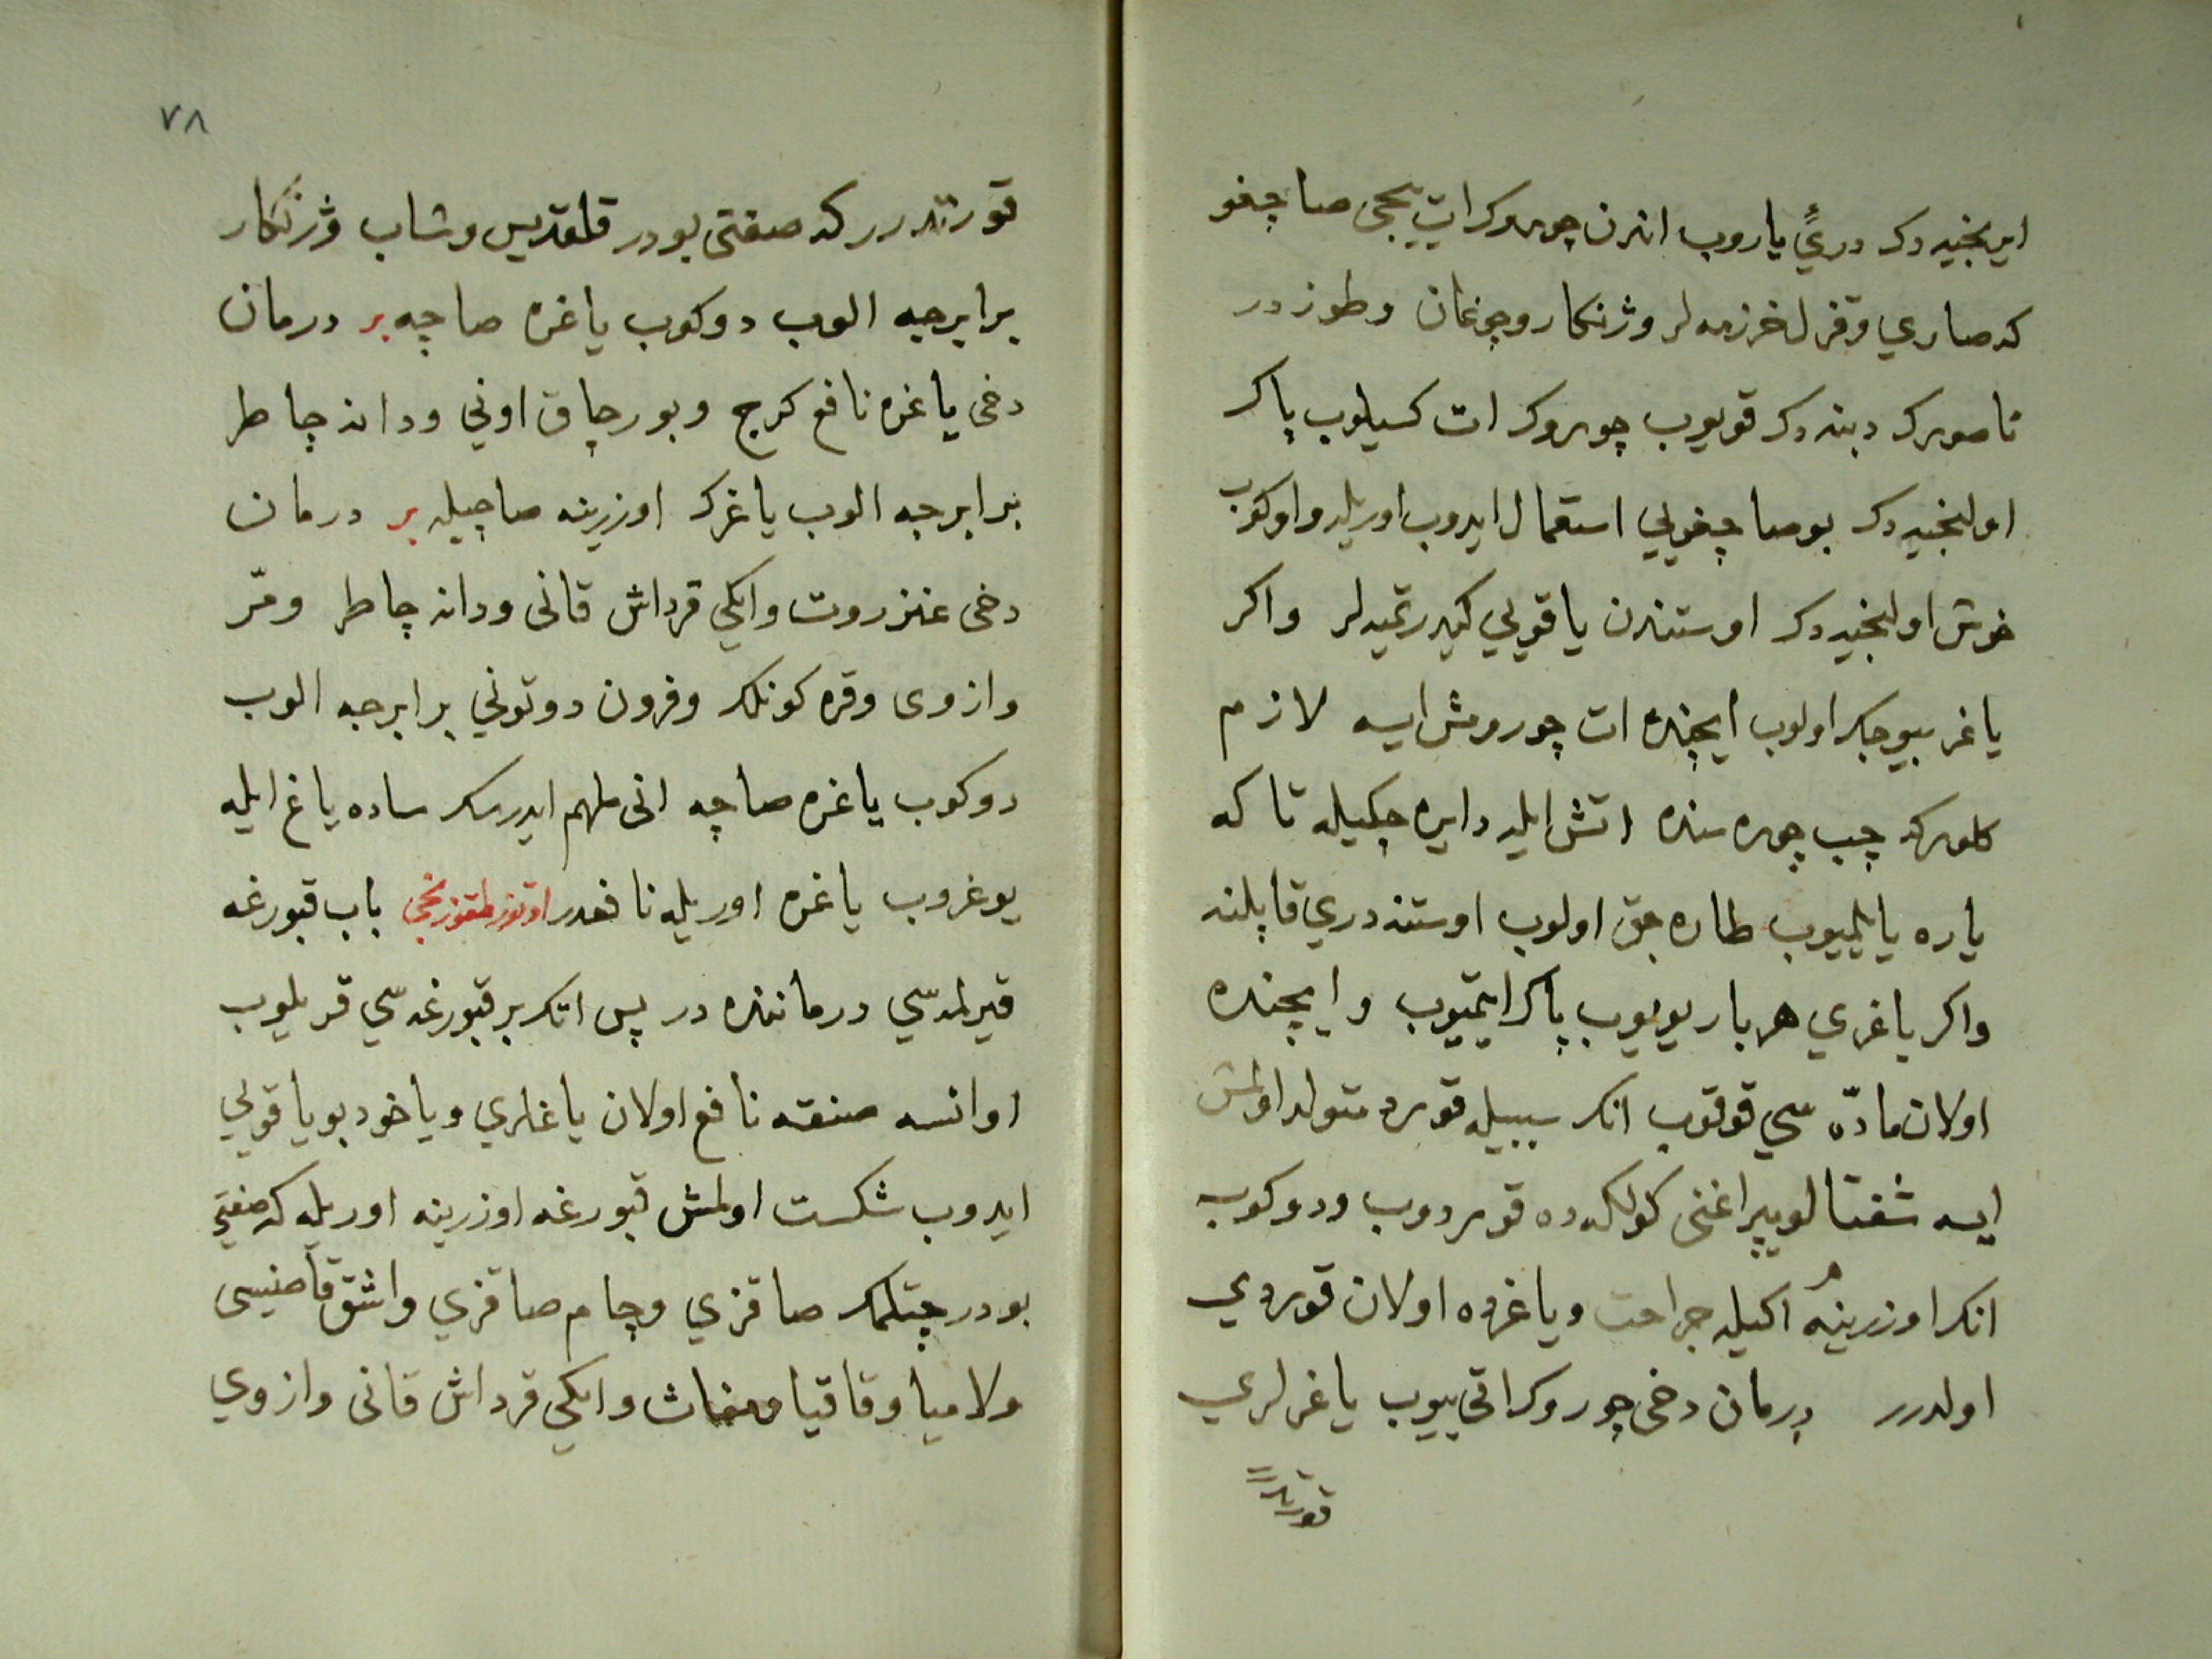 ایرنجیه دک دریٔ یاروب اندن چوروک ات ییجی صاچغو
که صاری و قزل خرزمه لر و ژنکار و چوغان و طوز در
ناصورک دبنه دک قویوب چوروک ات کسیلوب پاک
اولنجیه دک بو صاچغویی استعمال ایدوب اوریله و اوکوب
خوش اولنجیه دک اوستندن یاقویی کیدرتمیه لر و اکر
یاغر بیوجک اولوب ایچنده ات چورومش ایسه لازم
کلورکه چپ چوره سنده اتش ایله دایره چکیله تا که
یاره یایلمیوب طاره جق اولوب اوستنه دری قاپلنه
و اکر یاغری هر بار یویوب پاک ایتمیوب و ایچنده
اولان مادّه سی قوقوب انک سببیله قورد متولد اولمش
ایسه شفتالو یپراغنی کولکه ده قوردوب و دوکوب
انک اوزرینه اکیله جراحت و یاغرده اولان قوردی
اولدرر درمان دخی چوروک اتی ییوب یاغرلری
قورتدرر
٧٨
قورتدرر که صفتی بودر قلقدیس و شاب و ژنکار
برابرجه الوب دوکوب یاغره صاچه بر درمان
دخی یاغره نافع کرج و بورچاق اونی و دانه چاطر
برابرجه الوب یاغرک اوزرینه صاچیله بر درمان
دخی عنزروت و ایکی قرداش قانی و دانه چاطر و مرّ
و ازوی و قره کونلک و فرون دوتونی برابرجه الوب
دوکوب یاغره صاچه انی ملهم ایدرسک ساده یاغ ایله
یوغروب یاغره اوریله نافعدر اوتوز طقوزنجی باب قبورغه
قیرلمه سی درماننده در پس اتک بر قبورغه سی قریلوب
اوانسه صنقه نافع اولان یاغلری و یاخود بو یاقویی
ایدوب شکست اولمش قبورغه اوزرینه اوریله که صفتی
بودر چتلمک صاقزی و چام صاقزی و اشق قاصنیسی
و لامیا و قاقیا و مغاث و ایکی قرداش قانی و ازوی